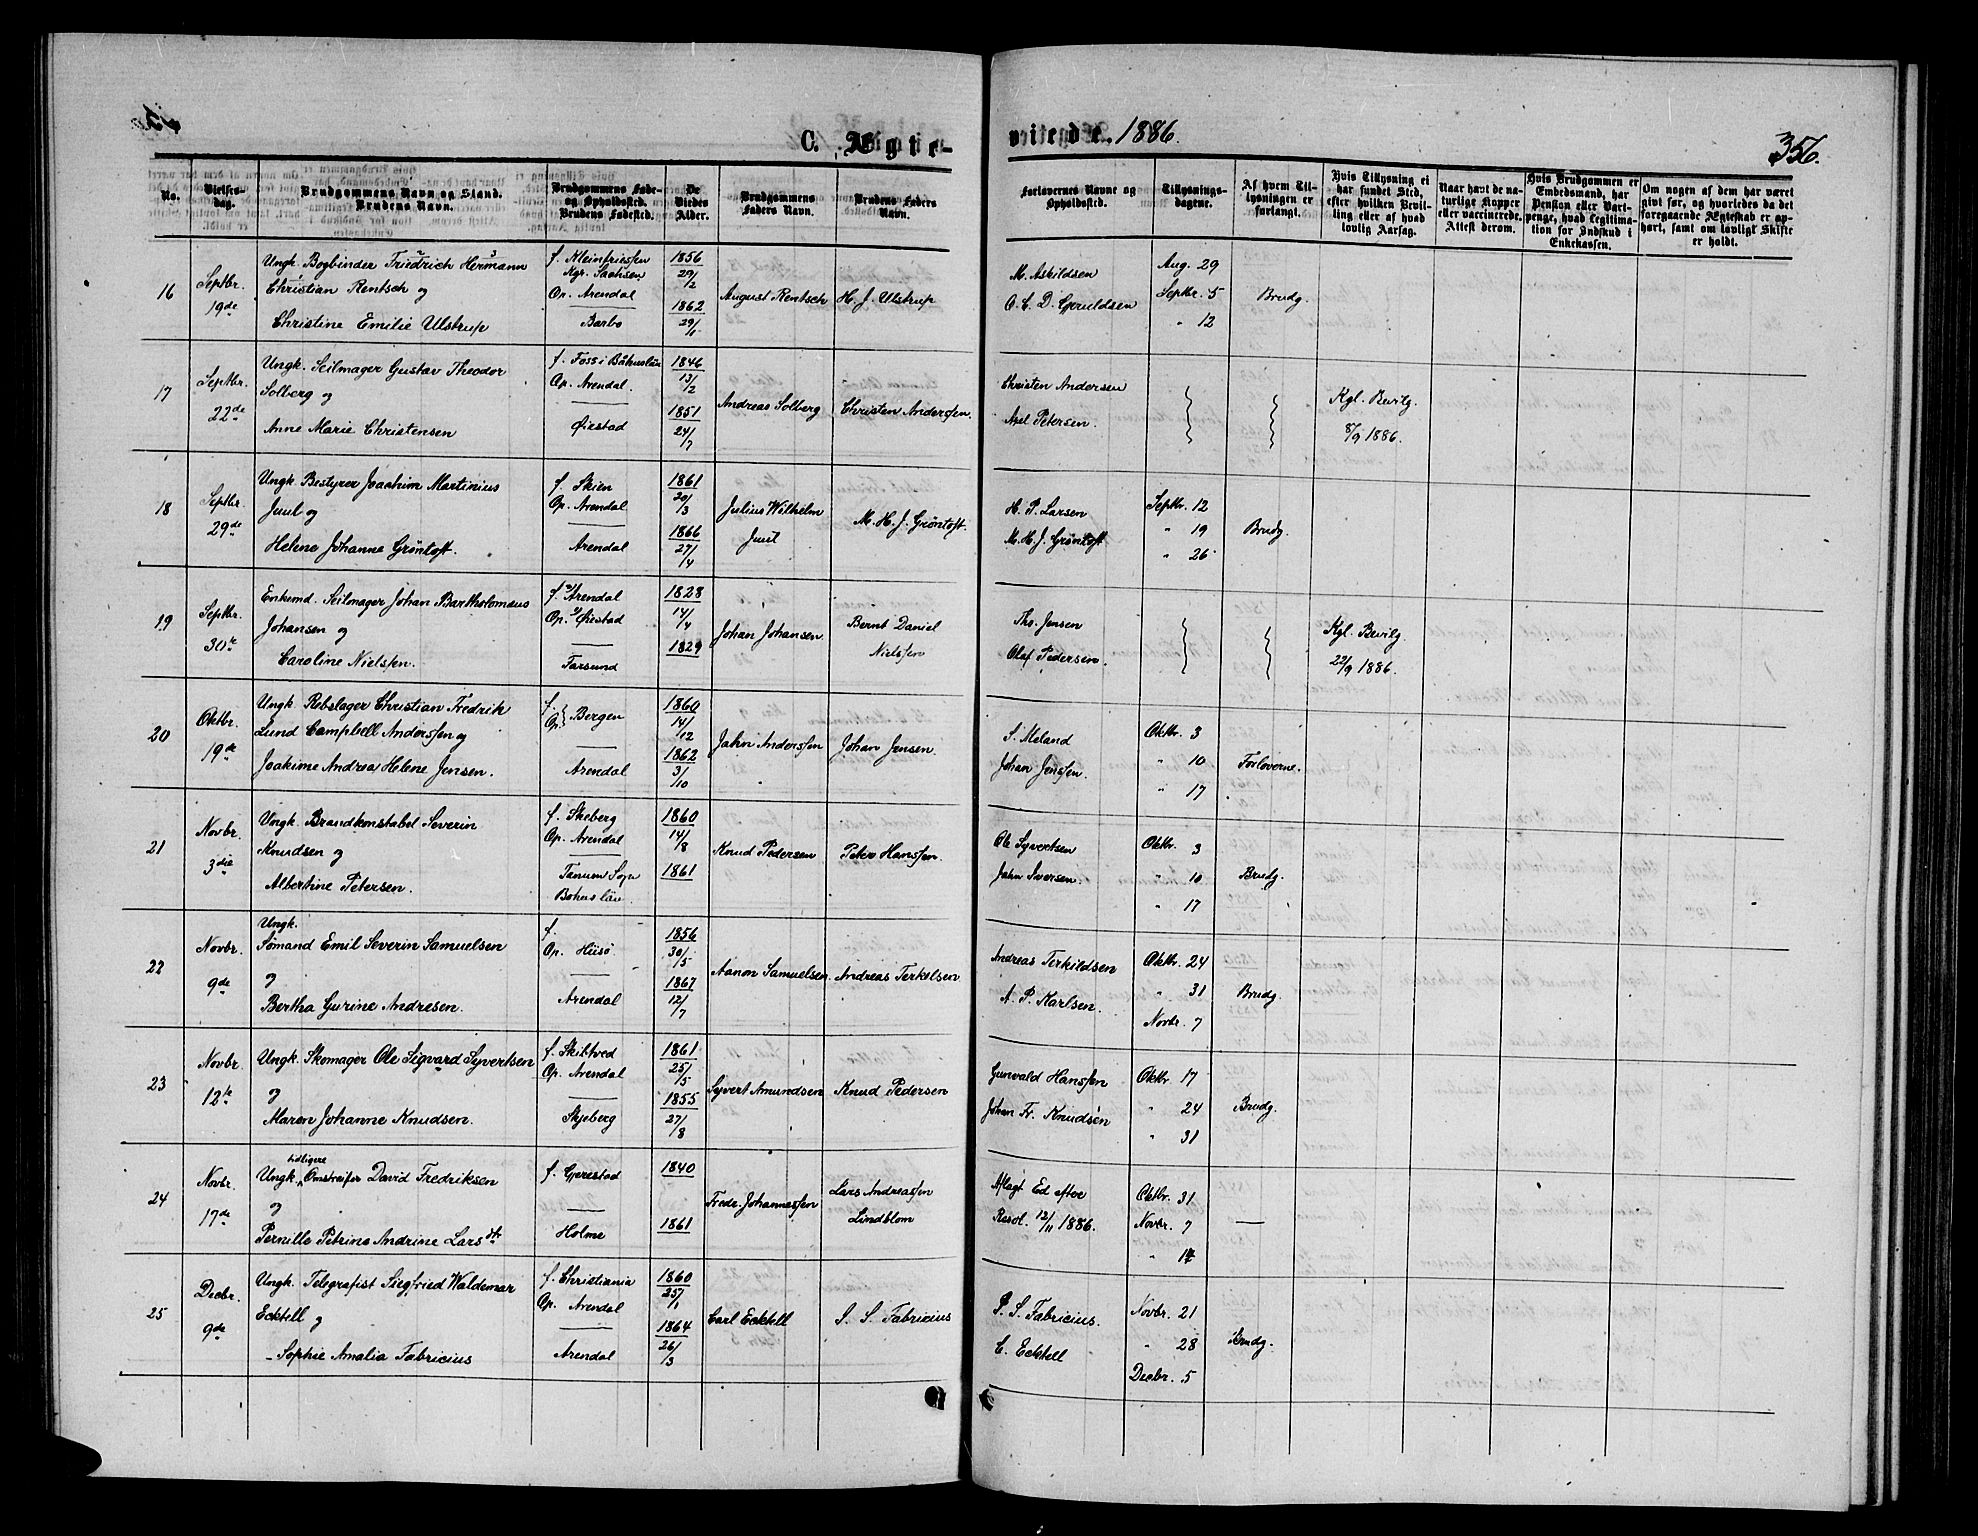 C. Ægte-
viede. 1886.
356.
No.
Vielses-dag.
Brudgommens Navn og Stand.
Brudens Navn.
Brudgommens Føde- og Opholdssted.
Brudens Fødested.
De Viedes Alder.
Brudgommens Faders Navn.
Brudens Faders Navn.
Forlovernes Navne og Opholdssted.
Tillysnings-dagene.
Af hvem Tillysningen er forlangt.
Hvis Tillysning ei har fundet Sted, efter hvilken Bevilling eller af hvad lovlig Aarsag.
Naar havt de naturlige Kopper eller vaccinerede. Attest derom.
Hvis Brudgommen er Embedsmand, har Pension eller Vartpenge, hvad Legitimation for Indskud i Enkekassen.
Om nogen af dem har været givt før, og hvorledes da det foregaaende Ægteskab er ophørt, samt om lovligt Skifte er holdt.
16
Septbr. 19de
Ungk. Bogbinder Friedrich Hermann
Christian Rentsch og
Christine Emilie Ulstrup
f. Kleinfriessen
Kgr. Sachsen
Op. Arendal
Barbo
1856 29/2
1862 29/11
August Rentsch
H. J. Ulstrup
M. Askildsen
O. C. D. Gjeruldsen
Aug. 29
Septbr. 5
" 12
Brudg.
17
Septbr. 22de
Ungk. Seilmager Gustav Theodor
Solberg og
Anne Marie Christensen
f. Foss i Båhuslän
Op. Arendal.
Øiestad
1846 13/2
1851 24/7
Andreas Solberg
Christen Anderssen.
Christen Andersen
Axel Petersen.
Kgl. Bevilg.
8/9 1886.
18
Septbr. 29de
Ungk. Bestyrer Joachim Martinius
Juul og
Helene Johanne Grøntoft.
f. Skien
Op. Arendal
Arendal
1861 20/3
1866 27/4
Julius Wilhelm
Juul
M. H. J. Grøntoft.
H. P. Larsen
M. H. J. Grøntoft
Septbr. 12
" 19
" 26
Brudg.
19
Septbr. 30te
Enkemd. Seilmager Johan Bartholomæus
Johansen og
Caroline Nielssen.
f. Arendal
Op. Øiestad
Farsund
1828 14/4
1829
Johan Johansen
Bernt Daniel
Nielssen
Ths. Jensen
Olaf Pedersen.
Kgl. Bevilg
22/9 1886.
20
Oktbr. 19de
Ungk. Rebslager Christian Fredrik
Lund Campbell Anderssen og
Joakime Andrea Helene Jensen.
f. Op. Bergen
Arendal
1860 14/12
1862 3/10
Jahn Anderssen
Johan Jensen.
S. Meland
Johan Jenssen.
Oktbr. 3
" 10
" 17
Forloverne.
21
Novbr. 3die
Ungk. Brandkonstabel Severin
Knudsen og
Albertine Petersen.
f. Skeberg
Op. Arendal
Tanum Sogn
Bohuslän.
1860 14/8
1861
Knud Pedersen
Peter Hanssen.
Ole Syvertsen
Jahn Iversen.
Oktbr. 3
" 10
" 17
Brudg.
22
Novbr. 9de
Ungk.
Sømand Emil Severin Samuelsen
og
Bertha Gurine Andresen.
f.
Op. Hiisø.
Arendal
1856 30/5
1867 12/7
Aanon Samuelsen.
Andreas Terkelsen
Andreas Terkildsen
A. P. Karlsen.
Oktbr. 24
" 31
Novbr. 7
Brudg.
23
Novbr. 12te
Ungk. Skomager Ole Sigvard Syvertsen
og
Maren Johanne Knudsen.
f. Skibtved
Op. Arendal
Skjeberg
1861 25/5
1855 27/8
Syvert Amundsen
Knud Pedersen
Gunvald Hanssen
Johan Fr. Knudsen
Oktbr. 17
" 24
" 31
Brudg.
24
Novbr. 17de
Ungk. tidligere Omstreifer David Fredriksen
og
Pernille Petrine Andrine Larsdtr
f. Gjerestad
Holme
1840
1861
Fredr. Johannessen
Lars Andreassen
Lindblom
Aflagt Ed efter
Resol. 12/11 1886.
Oktbr. 31
Novbr. 7
" 14
25
Decbr. 9de
Ungk. Telegrafist Siegfried Waldemar
Ecktell og
Sophie Amalia Fabricius
f. Christiania
Op. Arendal
Arendal
1860 25/1
1864 26/3
Carl Ecktell
S. S. Fabricius
P. S. Fabricius.
C. Ecktell
Novbr. 21
" 28
Decbr. 5
Brudg.